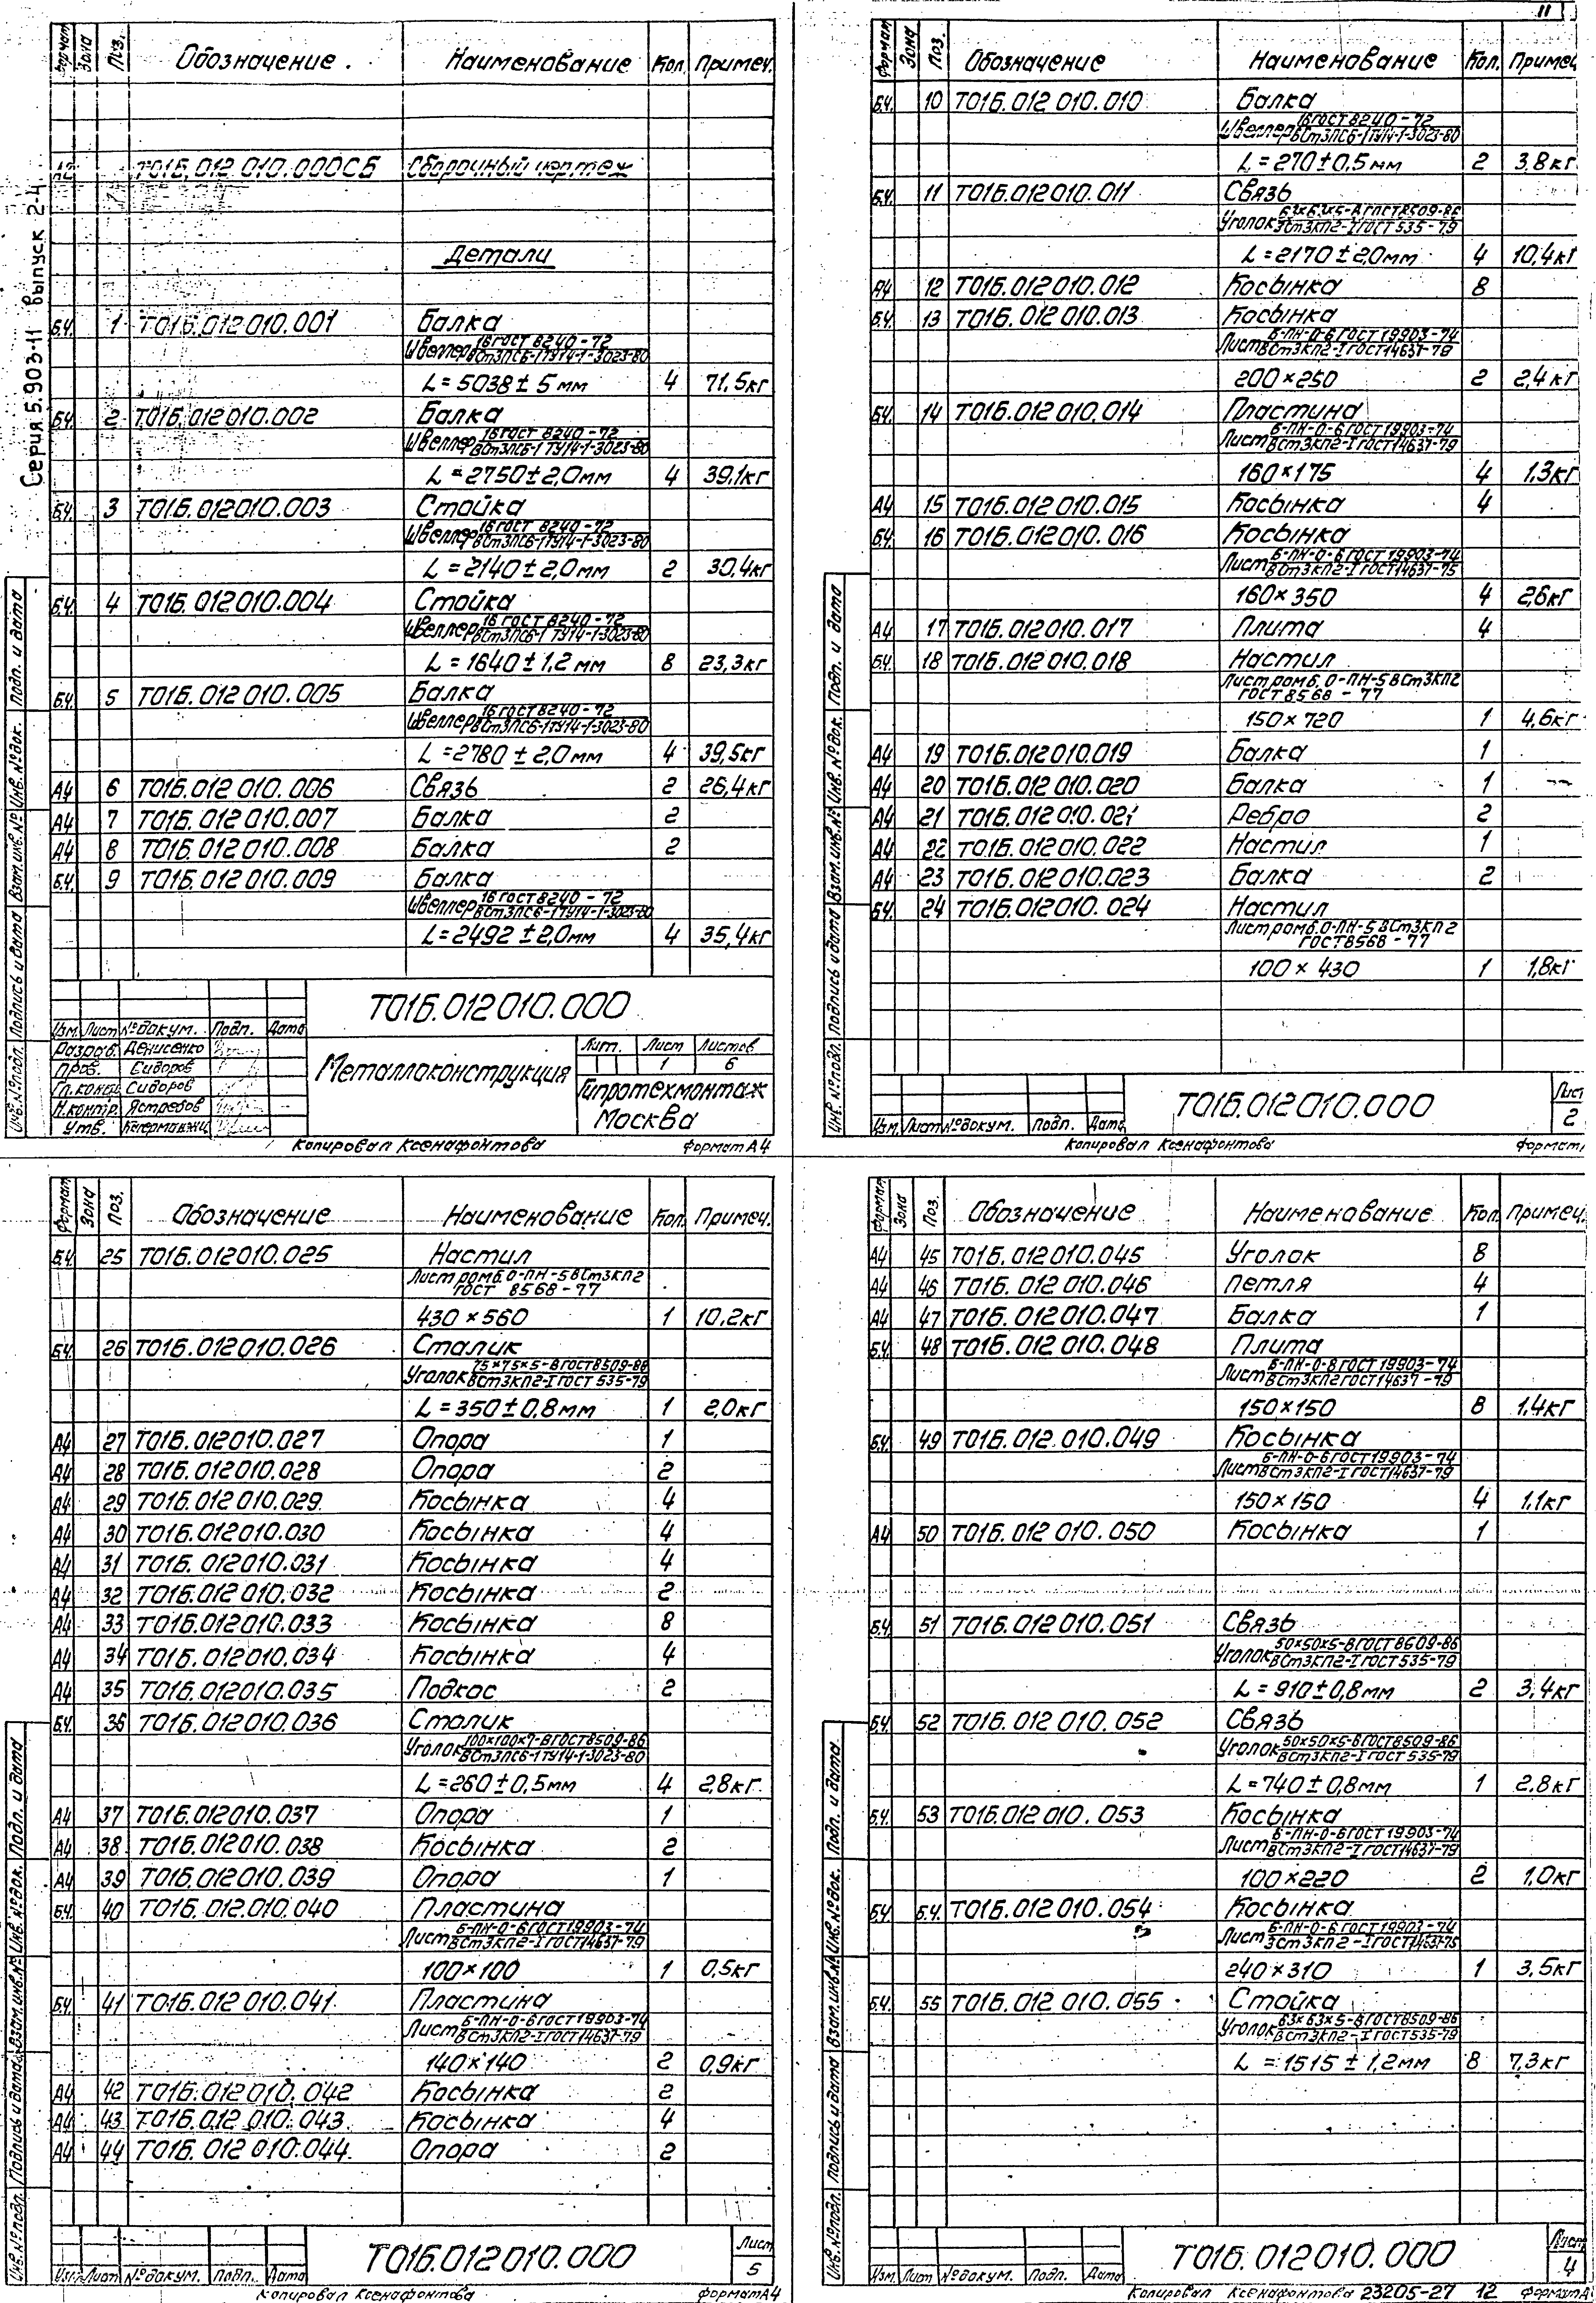 11
Серия 5.903-11 выпуск 2-4
Формат Зона Поз. Обозначение Наименование Кол. Примеч.
А2 Т01Б.012010.000СБ Сборочный чертеж
Детали
Б.Ч. 1 Т01Б.012010.001 Балка
Швеллер 16 ГОСТ 8240-72
ВСт3ПС6-1 ТУ14-1-3023-80
L=5038±5 мм 4 71,5кг
Б.Ч. 2 Т01Б.012010.002 Балка
Швеллер 16 ГОСТ 8240-72
ВСт3ПС6-1 ТУ14-1-3023-80
L=2750±2,0мм 4 39,1кг
Б.Ч. 3 Т01Б.012010.003 Стойка
Швеллер 16 ГОСТ 8240-72
ВСт3ПС6-1 ТУ14-1-3023-80
L=2140±2,0мм 2 30,4кг
Б.Ч. 4 Т01Б.012010.004 Стойка
Швеллер 16 ГОСТ 8240-72
ВСт3ПС6-1 ТУ14-1-3023-80
L=1640±1,2мм 8 23,3кг
Б.Ч. 5 Т01Б.012010.005 Балка
Швеллер 16 ГОСТ 8240-72
ВСт3ПС6-1 ТУ14-1-3023-80
L=2780±2,0мм 4 39,5кг
А4 6 Т01Б.012010.006 Связь 2 26,4кг
А4 7 Т01Б.012010.007 Балка 2
А4 8 Т01Б.012010.008 Балка 2
Б.Ч. 9 Т01Б.012010.009 Балка
Швеллер 16 ГОСТ 8240-72
ВСт3ПС6-1 ТУ14-1-3023-80
L=2492±2,0мм 4 35,4кг
Инв. № подл. Подпись и дата Взам. инв. № Инв. № док. Подп. и дата
Т01Б.012010.000
Изм. Лист № докум. Подп. Дата
Разраб. Денисенко
Пров. Сидоров
Гл. констр. Сидоров
Н.контр. Ястребов
Утв.
Металлоконструкция
Лит. Лист Листов
1 6
Гипротехмонтаж
Москва
Копировал Ксенафонтова Формат А4
Формат Зона Поз. Обозначение Наименование Кол. Примеч
Б.Ч. 10 Т01Б.012010.010 Балка
Швеллер 16 ГОСТ 8240-72
ВСт3ПС6-1 ТУ14-1-3023-80
L=270±0,5мм 2 3,8кг
Б.Ч. 11 Т01Б.012010.011 Связь
Уголок 63×63×5-В ГОСТ 8509-86
ВСт3КП2-I ГОСТ 535-79
L=2170±2,0мм 4 10,4кг
А4 12 Т01Б.012010.012 Косынка 8
Б.Ч. 13 Т01Б.012010.013 Косынка
Лист Б-ПН-О-6 ГОСТ 19903-74
ВСт3КП2-I ГОСТ 14637-79
200×250 2 2,4кг
Б.Ч. 14 Т01Б.012010.014 Пластина
Лист Б-ПН-О-6 ГОСТ 19903-74
ВСт3КП2-I ГОСТ 14637-79
160×175 4 1,3кг
А4 15 Т01Б.012010.015 Косынка 4
Б.Ч. 16 Т01Б.012010.016 Косынка
Лист Б-ПН-О-6 ГОСТ 19903-74
ВСт3КП2-I ГОСТ 14637-75
160×350 4 2,6кг
А4 17 Т01Б.012010.017 Плита 4
Б.Ч. 18 Т01Б.012010.018 Настил
Лист ромб.О-ПН-5 ВСт3КП2
ГОСТ 8568-77
150×720 1 4,6кг
А4 19 Т01Б.012010.019 Балка 1
А4 20 Т01Б.012010.020 Балка 1
А4 21 Т01Б.012010.021 Ребро 2
А4 22 Т01Б.012010.022 Настил 1
А4 23 Т01Б.012010.023 Балка 2
Б.Ч. 24 Т01Б.012010.024 Настил
Лист ромб.О-ПН-5 ВСт3КП2
ГОСТ 8568-77
100×430 1 1,8кг
Инв. № подл. Подпись и дата Взам. инв. № Инв. № док. Подп. и дата
Изм. Лист № докум. Подп. Дата
Т01Б.012010.000
Лист
2
Копировал Ксенафонтова Формат
Формат Зона Поз. Обозначение Наименование Кол. Примеч.
Б.Ч. 25 Т01Б.012010.025 Настил
Лист ромб.О-ПН-5 ВСт3КП2
ГОСТ 8568-77
430×560 1 10,2кг
Б.Ч. 26 Т01Б.012010.026 Столик
Уголок 75×75×5-В ГОСТ 8509-86
ВСт3КП2-I ГОСТ 535-79
L=350±0,8мм 1 2,0кг
А4 27 Т01Б.012010.027 Опора 1
А4 28 Т01Б.012010.028 Опора 2
А4 29 Т01Б.012010.029 Косынка 4
А4 30 Т01Б.012010.030 Косынка 4
А4 31 Т01Б.012010.031 Косынка 4
А4 32 Т01Б.012010.032 Косынка 2
А4 33 Т01Б.012010.033 Косынка 8
А4 34 Т01Б.012010.034 Косынка 4
А4 35 Т01Б.012010.035 Подкос 2
Б.Ч. 36 Т01Б.012010.036 Столик
Уголок 100×100×7-В ГОСТ 8509-86
ВСт3ПС6-1 ТУ14-1-3023-80
L=260±0,5мм 4 2,8кг
А4 37 Т01Б.012010.037 Опора 1
А4 38 Т01Б.012010.038 Косынка 2
А4 39 Т01Б.012010.039 Опора 1
Б.Ч. 40 Т01Б.012.010.040 Пластина
Лист Б-ПН-О-6 ГОСТ 19903-74
ВСт3КП2-I ГОСТ 14637-79
100×100 1 0,5кг
Б.Ч. 41 Т01Б.012010.041 Пластина
Лист Б-ПН-О-6 ГОСТ 19903-74
ВСт3КП2-I ГОСТ 14637-79
140×140 2 0,9кг
А4 42 Т01Б.012010.042 Косынка 2
А4 43 Т01Б.012.010.043 Косынка 4
А4 44 Т01Б.012010.044 Опора 2
Инв. № подл. Подпись и дата Взам. инв. № Инв. № док. Подп. и дата
Изм. Лист № докум. Подп. Дата
Т01Б.012010.000
Лист
5
Копировал Ксенафонтова Формат А4
Формат Зона Поз. Обозначение Наименование Кол. Примеч.
А4 45 Т01Б.012010.045 Уголок 8
А4 46 Т01Б.012010.046 Петля 4
А4 47 Т01Б.012010.047 Балка 1
Б.Ч. 48 Т01Б.012010.048 Плита
Лист Б-ПН-О-8 ГОСТ 19903-74
ВСт3КП2 ГОСТ 14637-79
150×150 8 1,4кг
Б.Ч. 49 Т01Б.012.010.049 Косынка
Лист Б-ПН-О-6 ГОСТ 19903-74
ВСт3КП2-I ГОСТ 14637-79
150×150 4 1,1кг
А4 50 Т01Б.012010.050 Косынка 1
Б.Ч. 51 Т01Б.012010.051 Связь
Уголок 50×50×5-В ГОСТ 8509-86
ВСт3КП2-I ГОСТ 535-79
L=910±0,8мм 2 3,4кг
Б.Ч. 52 Т01Б.012010.052 Связь
Уголок 50×50×5-В ГОСТ 8509-86
ВСт3КП2-I ГОСТ 535-79
L=740±0,8мм 1 2,8кг
Б.Ч. 53 Т01Б.012010.053 Косынка
Лист Б-ПН-О-6 ГОСТ 19903-74
ВСт3КП2-I ГОСТ 14637-79
100×220 2 1,0кг
Б.Ч. Б.Ч. Т01Б.012010.054 Косынка
Лист Б-ПН-О-6 ГОСТ 19903-74
ВСт3КП2-I ГОСТ 14637-75
240×310 1 3,5кг
Б.Ч. 55 Т01Б.012010.055 Стойка
Уголок 63×63×5-В ГОСТ 8509-86
ВСт3КП2-I ГОСТ 535-79
L=1515±1,2мм 8 7,3кг
Инв. № подл. Подпись и дата Взам. инв. № Инв. № док. Подп. и дата
Изм. Лист № докум. Подп. Дата
Т01Б.012010.000
Лист
4
Копировал Ксенафонтова 23205-27 12 Формат А